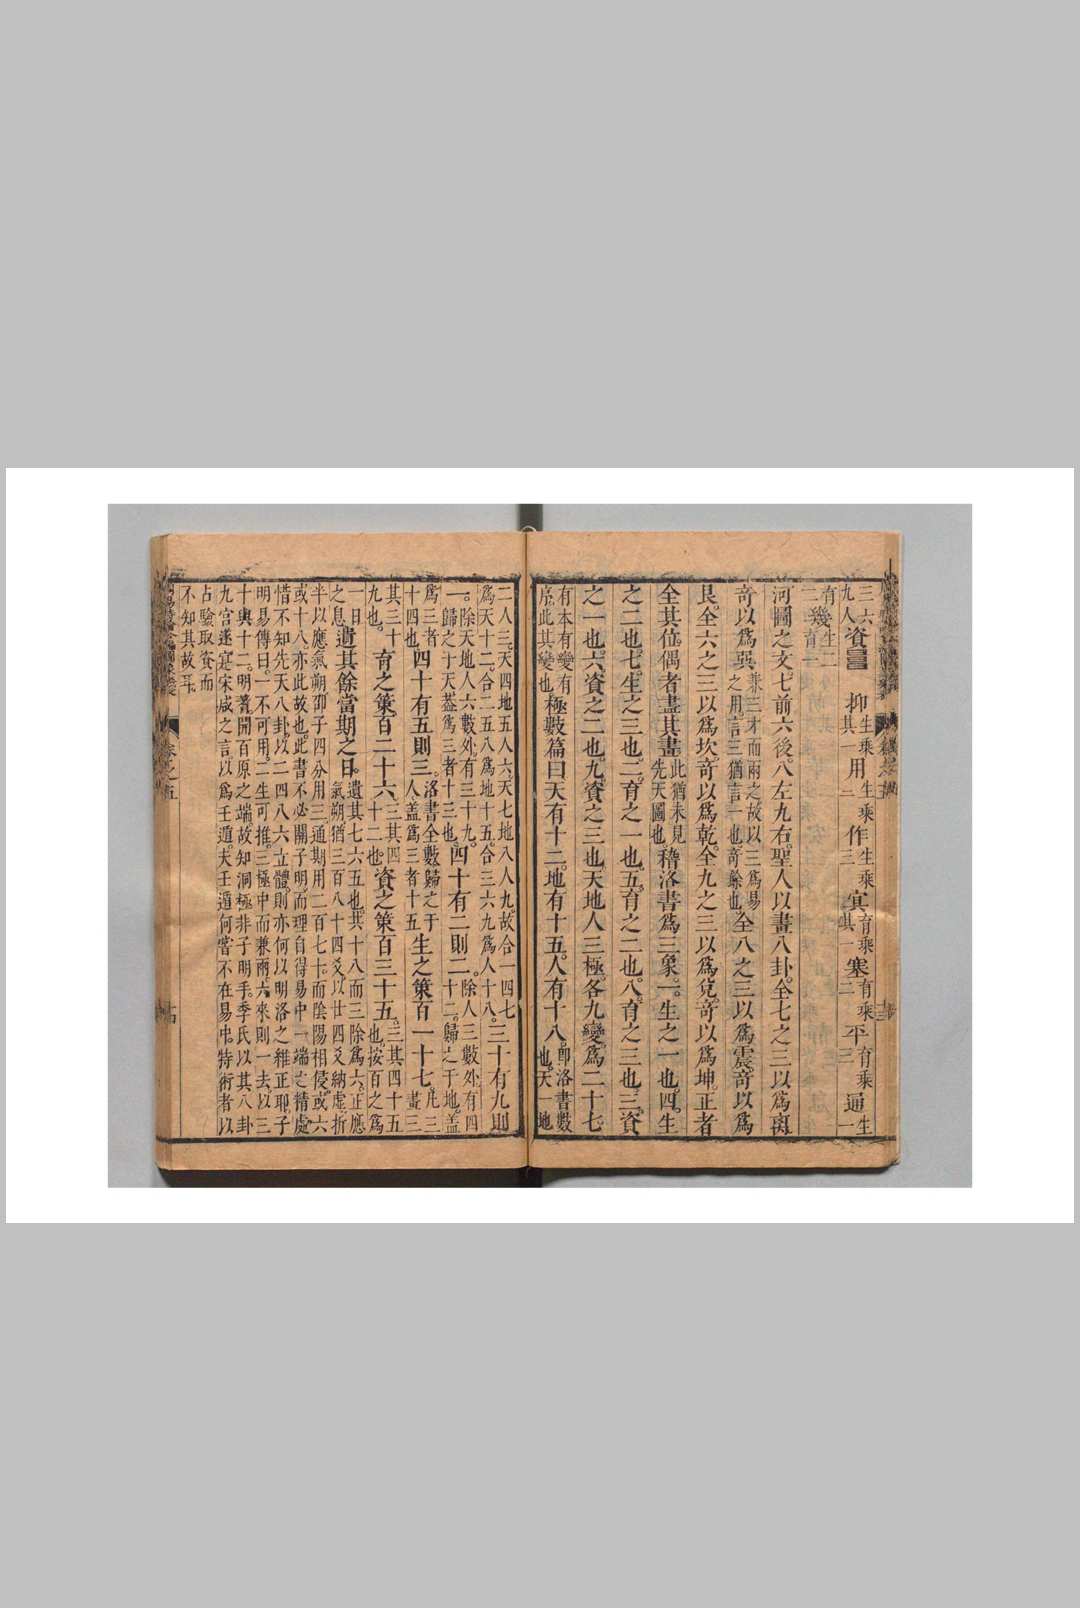 三六九人資䷁ 抑生乘其一用生乘二作生乘三寔育乘其一塞有乘二平育乘三通生一
有幾生二育一
河圖之文七前六後八左九右聖人以畫八卦全七之三以爲离
奇以爲巽兼三才而兩之故以三爲易之用言三猶言一也奇餘也全八之三以爲震奇以爲
艮全六之三以爲坎奇以爲乾全九之三以爲兌奇以爲坤正者
全其位偶者盡其畫此猶未見先天圖也稽洛書爲三象一生之一也四生
之二也七生之三也二育之一也五育之二也八育之三也三資
之一也六資之二也九資之三也天地人三極各九變爲二十七
有本有變有序此其變也極數篇曰天有十二地有十五人有十八卽洛書數也天一地
二人三天四地五人六天七地八人九故合一四七爲天十二合二五八爲地十五合三六九爲人十八三十有九則
一除天地人六數外有三十九歸之于天葢爲三者十三也四十有二則二除人三數外有四十二歸之于地葢
爲三者十四也四十有五則三洛書全數歸之于人葢爲三者十五生之策百一十七凡三畫三
其三十九也育之策百二十六三其四十二也資之策百三十五三其四十五也按百之爲
一日之息遺其餘當期之日遺其七六五也其十八而三除爲六正應氣朔猶三百八十四爻以廿四爻納虛折
半以應氣朔卲子四分用三通期用二百七十而陰陽相侵或六
或十八亦此故也此書不必關子明而理自得易中一端之精處
惜不知先天八卦以二四八六立體則亦何以明洛之維正耶子
明易傳曰一不可用二生可推三極中而兼兩六來則一去以三
十輿十二明蓍開百原之端故知洞極非子明手季氏以其八卦
九宮遂寔宋咸之言以爲王遁夫王遁何嘗不在易中特術者以
占驗取資而不知其故耳
卷之五
十四